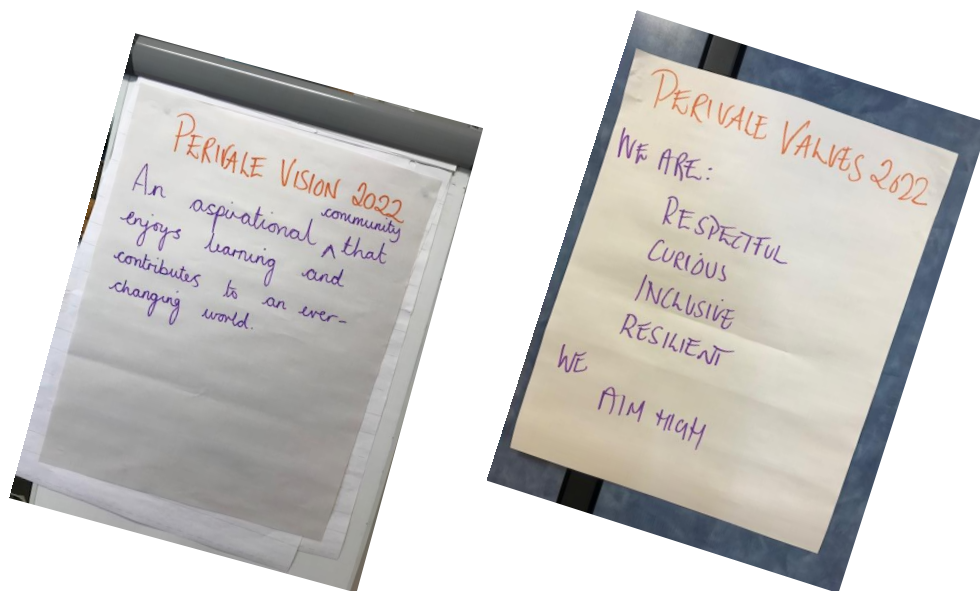 PERIVALE VISION 2022
An aspirational ^ community that
enjoys learning and
contributes to an ever-
changing world.
PERIVALE VALUES 2022
WE ARE:
RESPECTFUL
CURIOUS
INCLUSIVE
RESILIENT
WE
AIM HIGH